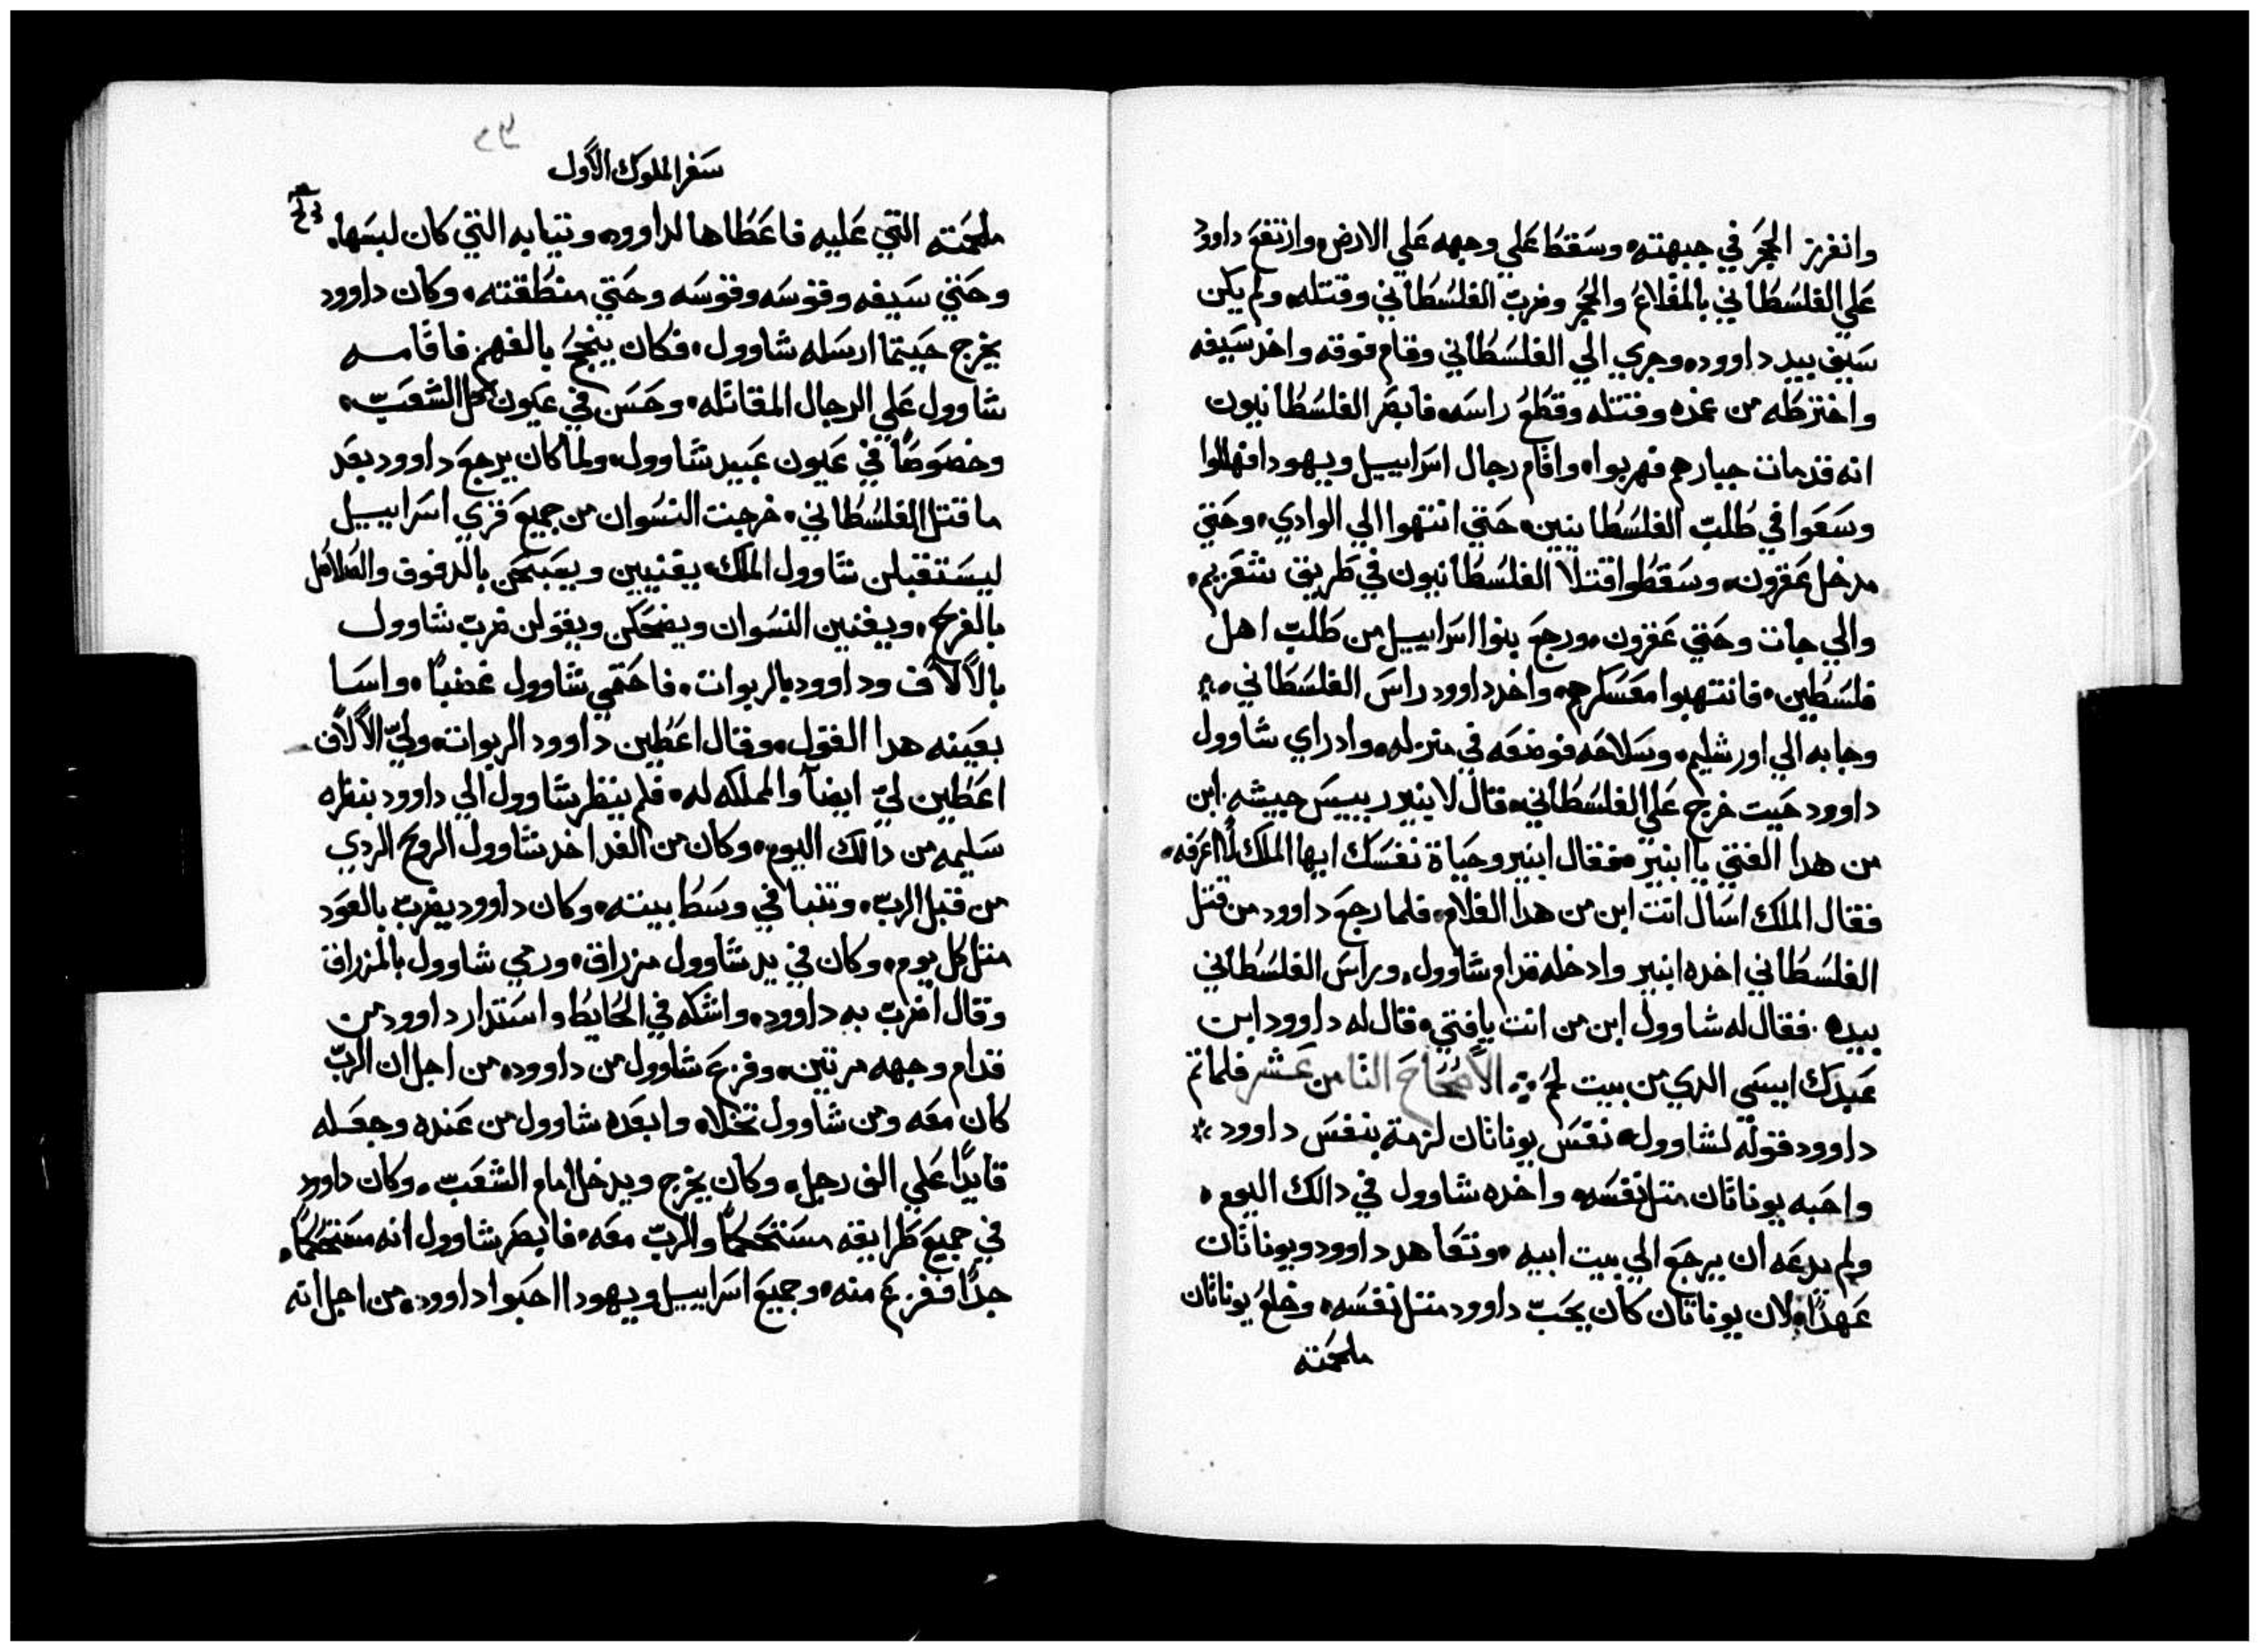 وانغرز الحجر في جبهته، وسقط علي وجهه علي الارض، وارتفع داوود
علي الفلسطاني بالمقلاع والحجر وضرب الفلسطاني وقتله، ولم يكن
سيف بيد داوود، وجري الي الفلسطاني وقام فوقه واخد سيفه
واخترطه من غمده وقتله وقطع راسه، فابصر الفلسطانيون
انه قد مات جبارهم فهربوا، واقام رجال اسراييل ويهودا فهللوا
وسعوا في طلب الفلسطانيين، حتي انتهوا الي الوادي، وحتي
مدخل عقرون، وسقطوا قتلا الفلسطانيون في طريق شغريم،
والي جات وحتي عقرون، ورجع بنوا اسراييل من طلب اهل
فلسطين، فانتهبوا معسكرهم، واخد داوود راس الفلسطاني،
وجابه الي اورشليم، وسلاحه فوضعه في منزله، واد راي شاوول
داوود حيت خرج علي الفلسطاني، قال لابنير رييس جيشه، ابن
من هدا الفتي يا ابنير، فقال ابنير وحياة نفسك ايها الملك لا اعرفه،
فقال الملك اسال انت ابن من هدا الغلام، فلما رجع داوود من قتل
الفلسطاني اخده ابنير وادخله قدام شاوول، وراس الفلسطاني
بيده، فقال له شاوول ابن من انت يا فتي، قال له داوود ابن
عبدك ايسي الدي من بيت لحم، الاصحاح التامن عشر فلما تم
داوود قوله لشاوول، نفس يوناتان لزمة بنفس داوود
واحبه يوناتان متل نفسه، واخده شاوول في دالك اليوم،
ولم يدعه ان يرجع الي بيت ابيه، وتعاهد داوود ويوناتان
عهدًا، لان يوناتان كان يحب داوود متل نفسه، وخلع يوناتان
ملحمته
سفر الملوك الأول
ملحمته التي عليه فاعطاها لداوود، وتيابه التي كان لبسها،
وحتي سيفه وقوسه وقوسه وحتي منطقته، وكان داوود
يخرج حيتما ارسله شاوول، فكان ينجح بالفهم، فاقامه
شاوول علي الرجال المقاتله، وحسن في عيون كل الشعب،
وخصوصًا في عيون عبيد شاوول، ولما كان يرجع داوود بعد
ما قتل الفلسطاني، خرجت النسوان من جميع قري اسراييل
ليستقبلن شاوول الملك، يغنيين ويصبحن بالدفوف والصلاصل
بالفرح، ويغنين النسوان ويضحكن ويقولن ضرب شاوول
بالألاف وداوود بالربوات، فاحتمي شاوول غضبًا، واسا
بعينه هدا القول، وقال اعطين داوود الربوات، ولي الألاف
اعطين لي ايضًا والمملكه له، فلم ينظر شاوول الي داوود بنظره
سليمه من دالك اليوم، وكان من الغد اخد شاوول الروح الردي
من قبل الرب، وتنبا في وسط بيته، وكان داوود يضرب بالعود
متل كل يوم، وكان في يد شاوول مزراق، ورمي شاوول بالمزراق
وقال اضرب به داوود، واشكه في الحايط واستدار داوود من
قدام وجهه مرتين، وفزع شاوول من داوود، من اجل ان الرب
كان معه ومن شاوول تخلا، وابعده شاوول من عنده وجعله
قايدًا علي الف رجل، وكان يخرج ويدخل امام الشعب، وكان داوود
في جميع طرايقه مستحكمًا والرب معه، فابصر شاوول انه مستحكمًا،
جدًا ففزع منه، وجميع اسراييل ويهودا احبوا داوود، من اجل انه